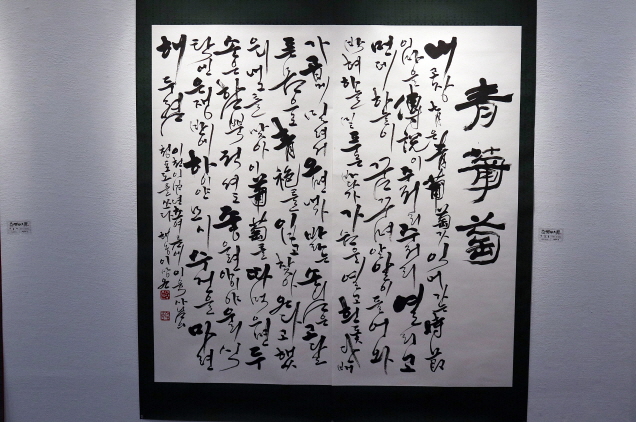 青葡萄
내 고장 七月은 青葡萄가 익어가는 時節
이 마을 傳說이 주저리 주저리 열리고
먼데 하늘이 꿈꾸며 알알이 들어와
박혀 하늘 밑 푸른 바다가 가슴을 열고 흰 돛단배
가 곱게 밀려서 오면 내가 바라는 손님은 고달
픈 몸으로 青袍를 입고 찾아온다고 했
으니 내 그를 맞아 이 葡萄를 따먹으면 두
손은 함뿍 적셔도 좋으련 아이야 우리 식
탁엔 은쟁반에 하이얀 모시 수건을 마련
해 두렴
이육사님의
청포도를 쓰다